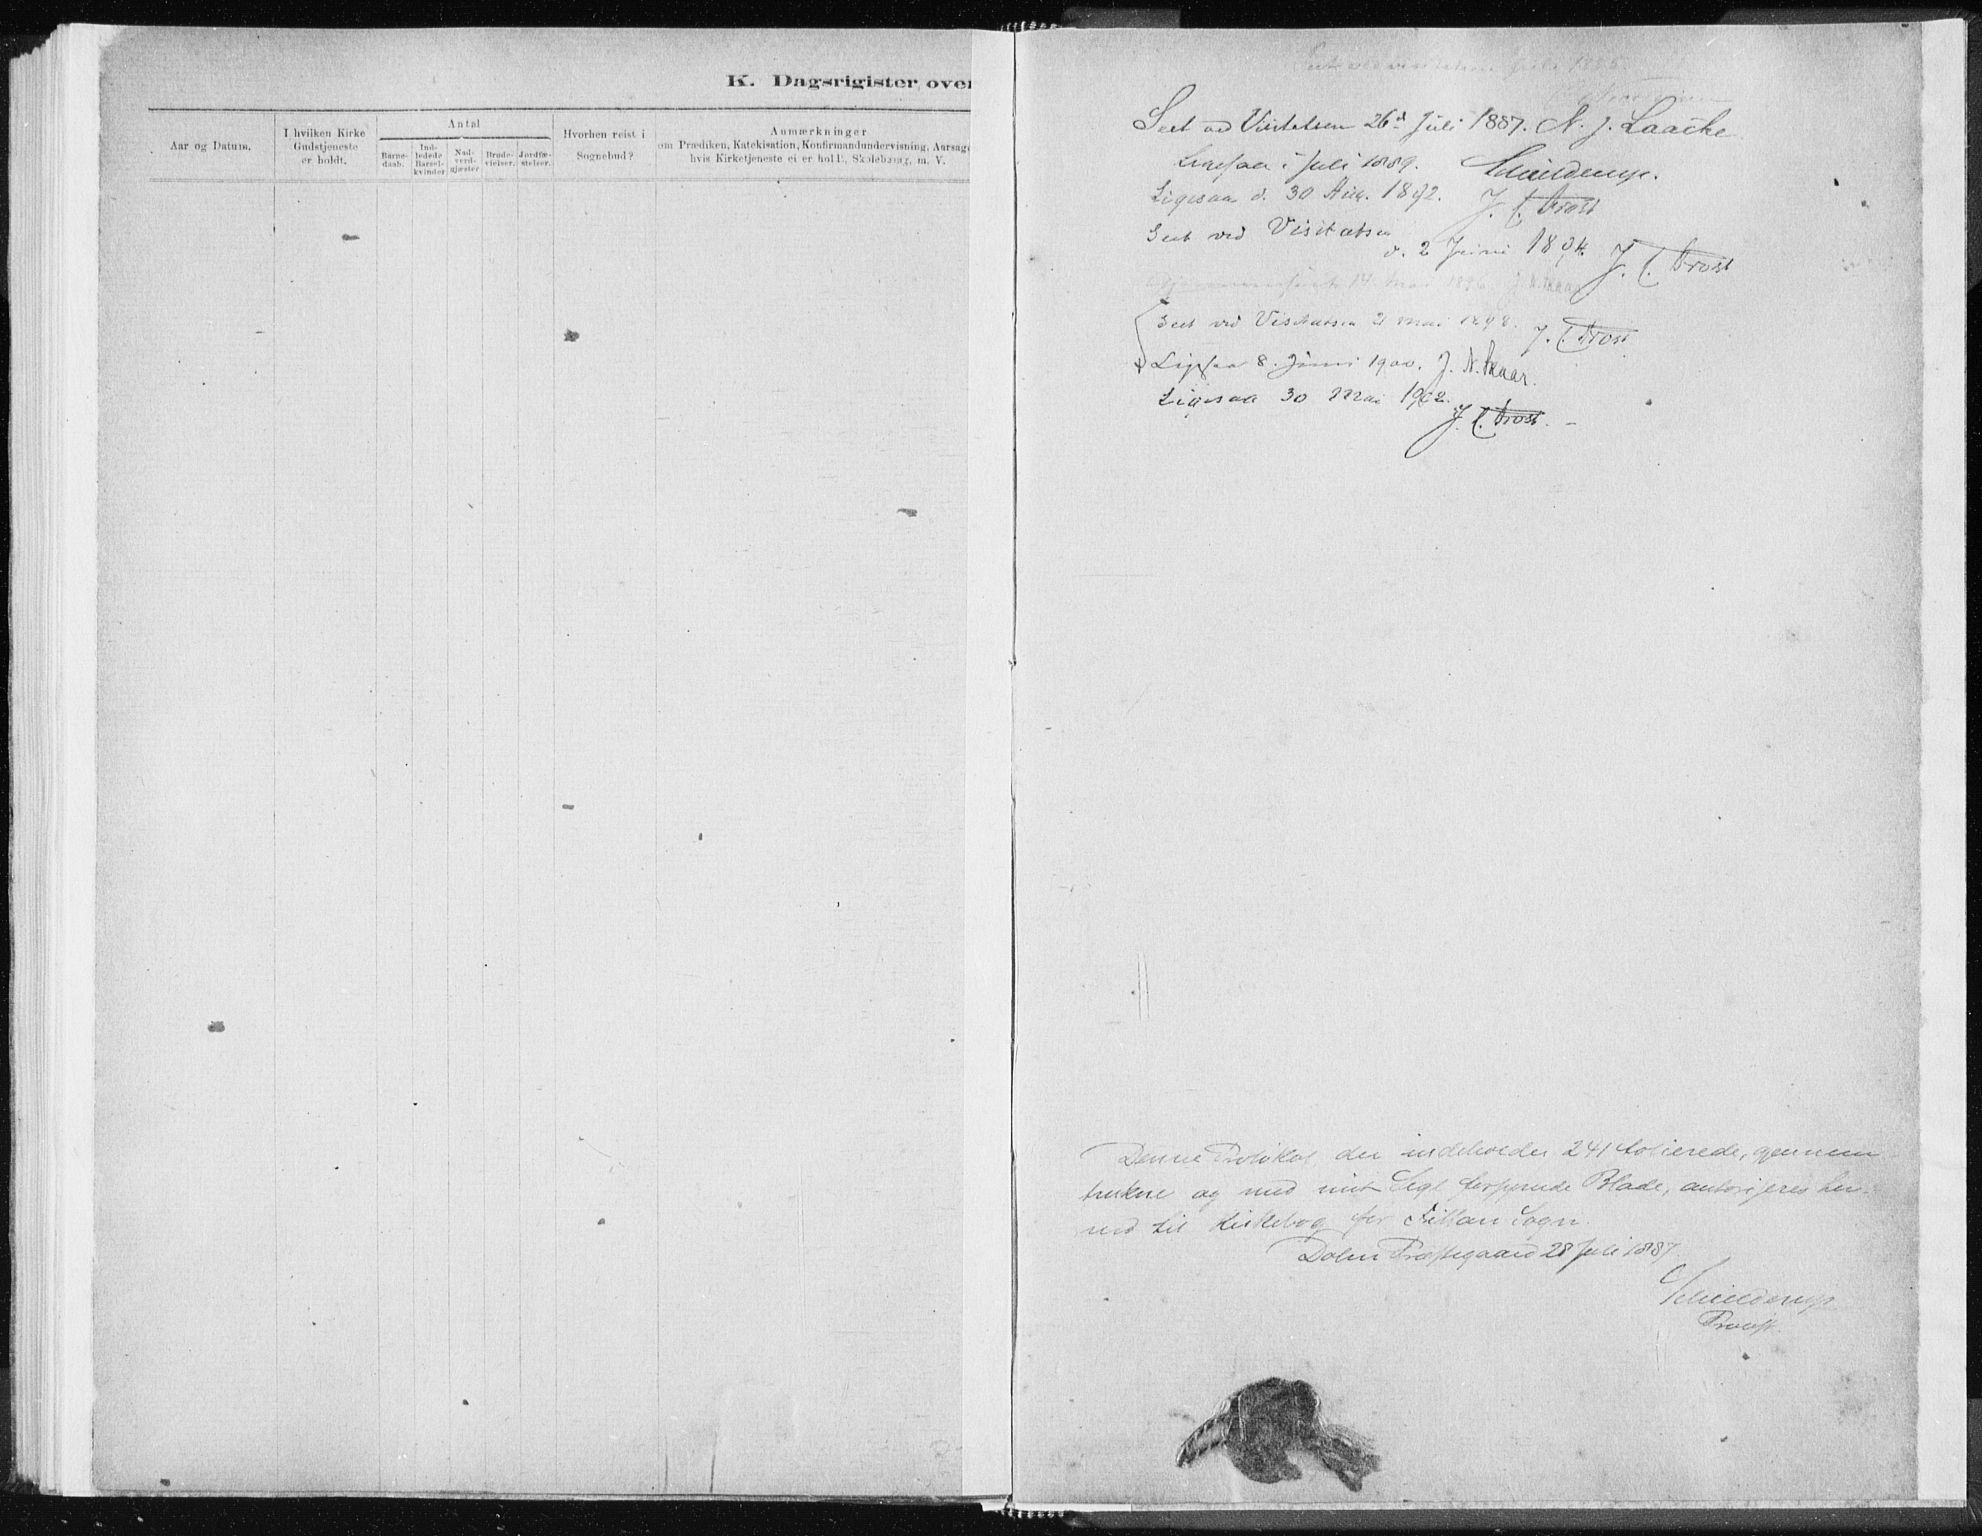 K. Dagsrigister over
Aar og Datum.
I hvilken Kirke
Gudstjeneste
er holdt.
Antal
Barne-
daab.
Ind-
ledede
Barsel-
kvinder
Nad-
verd-
gjæster
Brude-
vielser.
Jordfæ-
stelser.
Hvorhen reist i
Sognebud?
Anmærkninger
om Prædiken, Katekisation, Konfirmandundervisning, Aarsage
hvis Kirketjeneste ei er holdt, Skolebesøg, m. V.
Seet ved Visitatsen 26d Juli 1887. N. J. Laache
Ligesaa i Juli 1889. Schielderup.
Ligesaa d. 30 Aug. 1892. J. C. Trost
Seet ved Visitatsen
d. 2 Juni 1894. J. C. Trost
14 Mai 1896 J. N. Skaar
Seet ved Visitatsen 2 Mai 1898. J. C. Trost
Ligesaa 8. Juni 1900. J. N. Skaar.
Ligesaa 30 Mai 1902.
J. C. Trost. –
Denne Protokol, der indeholder 241 folierede, gjennem
trukne og med mit Segl forsynede Blade, autoriseres her-
ved til Kirkebog for Fillan Sogn.
Dolm Præstegaard 28 Juli 1887
Schielderup
Provst.